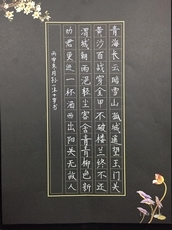 青海长云暗雪山孤城遥望玉门关
黄沙百战穿金甲不破楼兰终不还
渭城朝雨浥轻尘客舍青青柳色新
劝君更进一杯酒西出阳关无故人